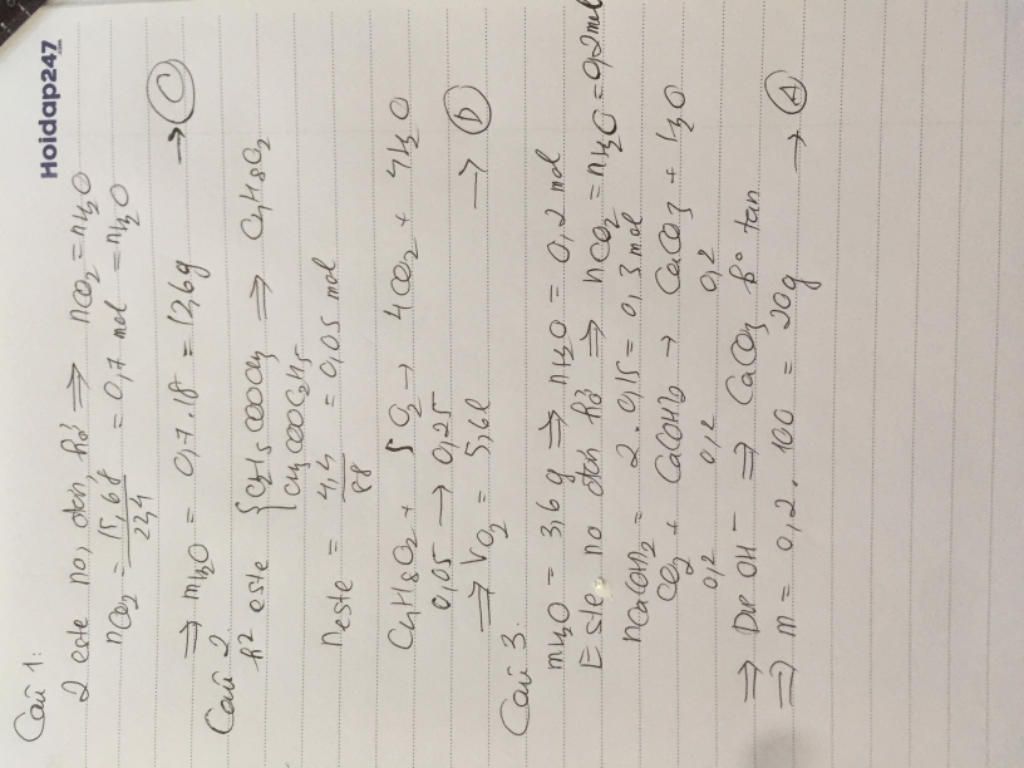 Hoidap247
.com
Câu 1:
2 este no, đơn, hở ⇒ nCO2 = nH2O
nCO2 = 15,68/22,4 = 0,7 mol = nH2O
⇒ mH2O = 0,7.18 = 12,6g → C
Câu 2
h² este { C2H5COOCH3 ⇒ C4H8O2
CH3COOC2H5
neste = 4,4/88 = 0,05 mol
C4H8O2 + 5O2 → 4CO2 + 4H2O
0,05 → 0,25
⇒ VO2 = 5,6l → D
Câu 3.
mH2O = 3,6g ⇒ nH2O = 0,2 mol
Este no đơn hở ⇒ nCO2 = nH2O = 0,2 mol
nCa(OH)2 = 2.0,15 = 0,3 mol
CO2 + Ca(OH)2 → CaCO3 + H2O
0,2 0,2 0,2
⇒ Dư OH⁻ ⇒ CaCO3 k° tan
⇒ m = 0,2.100 = 20g → A